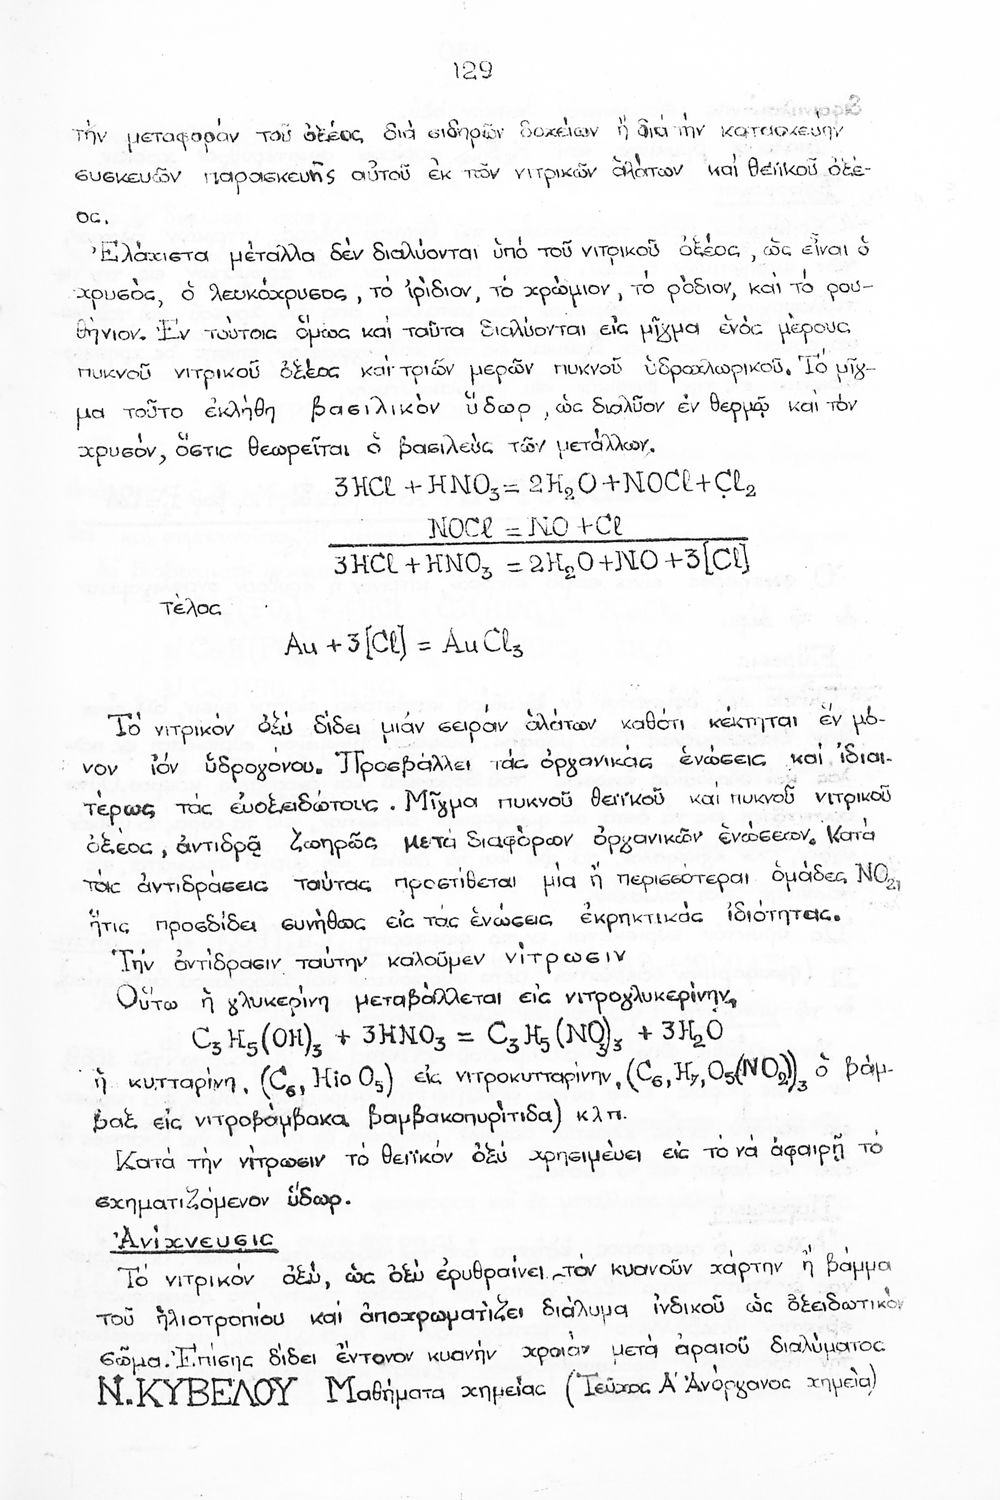 129
τήν μεταφοράν τοῦ ὀξέος διά σιδηρῶν δοχείων ἤ διά τήν κατασκευήν
συσκευῶν παρασκευῆς αὐτοῦ ἐκ τῶν νιτρικῶν ἁλάτων καί θειϊκοῦ ὀξέ-
ος.
Ἐλάχιστα μέταλλα δέν διαλύονται ὑπό τοῦ νιτρικοῦ ὀξέος, ὡς εἶναι ὁ
χρυσός, ὁ λευκόχρυσος, τό ἰρίδιον, τό χρώμιον, τό ρόδιον, καί τό ρου-
θήνιον. Ἐν τούτοις ὅμως καί ταῦτα διαλύονται εἰς μῖγμα ἑνός μέρους
πυκνοῦ νιτρικοῦ ὀξέος καί τριῶν μερῶν πυκνοῦ ὑδροχλωρικοῦ. Τό μῖγ-
μα τοῦτο ἐκλήθη βασιλικόν ὕδωρ, ὡς διαλῦον ἐν θερμῷ καί τόν
χρυσόν, ὅστις θεωρεῖται ὁ βασιλεύς τῶν μετάλλων.
3HCl + HNO₃ = 2H₂O + NOCl + Cl₂
NOCl = NO + Cl
3HCl + HNO₃ = 2H₂O + NO + 3[Cl]
τέλος
Au + 3[Cl] = AuCl₃
Τό νιτρικόν ὀξύ δίδει μιάν σειράν ἁλάτων καθότι κέκτηται ἕν μό-
νον ἰόν ὑδρογόνου. Προσβάλλει τάς ὀργανικάς ἑνώσεις καί ἰδιαι-
τέρως τας εὐοξειδώτους. Μῖγμα πυκνοῦ θειϊκοῦ καί πυκνοῦ νιτρικοῦ
ὀξέος, ἀντιδρᾷ ζωηρῶς μετά διαφόρων ὀργανικῶν ἑνώσεων. Κατά
τάς ἀντιδράσεις ταύτας προστίθεται μία ἤ περισσότεραι ὁμάδες NO₂,
ἥτις προσδίδει συνήθως εἰς τάς ἑνώσεις ἐκρηκτικάς ἰδιότητας.
Τήν ἀντίδρασιν ταύτην καλοῦμεν νίτρωσιν
Οὕτω ἡ γλυκερίνη μεταβάλλεται εἰς νιτρογλυκερίνην,
C₃H₅(OH)₃ + 3HNO₃ = C₃H₅(NO₃)₃ + 3H₂O
ἡ κυτταρίνη, (C₆, H₁₀ O₅) εἰς νιτροκυτταρίνην, (C₆, H₇, O₅(NO₂))₃ ὁ βάμ-
βαξ εἰς νιτροβάμβακα βαμβακοπυρίτιδα) κλπ.
Κατά τήν νίτρωσιν τό θειϊκόν ὀξύ χρησιμεύει εἰς τό νά ἀφαιρῇ τό
σχηματιζόμενον ὕδωρ.
Ἀνίχνευσις
Τό νιτρικόν ὀξύ, ὡς ὀξύ ἐρυθραίνει τόν κυανοῦν χάρτην ἤ βάμμα
τοῦ ἡλιοτροπίου καί ἀποχρωματίζει διάλυμα ἰνδικοῦ ὡς ὀξειδωτικόν
σῶμα. Ἐπίσης δίδει ἔντονον κυανήν χροιάν μετά ἀραιοῦ διαλύματος
Ν. ΚΥΒΕΛΟΥ Μαθήματα χημείας (Τεῦχος Α' Ἀνόργανος χημεία)